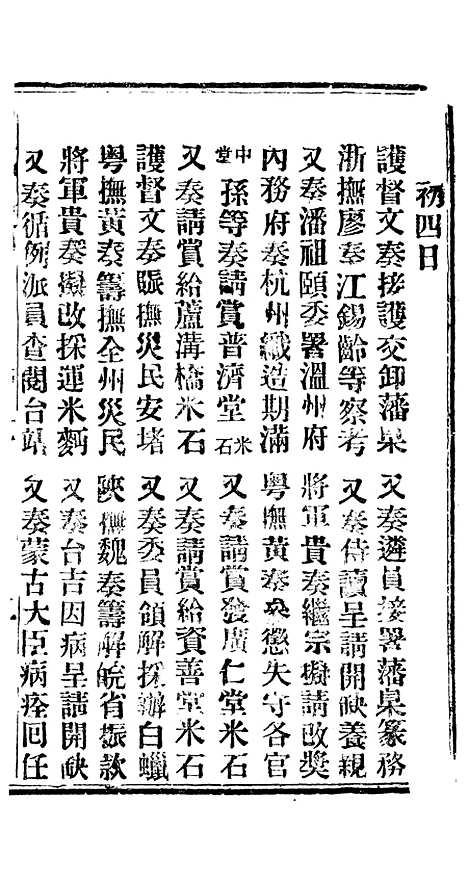 初四日
護督文奏接護交卸藩臬　又奏遴員接署藩臬篆務
浙撫廖奏江錫齡等察考　又奏侍讀呈請開缺養親
又奏潘祖頤委署溫州府　將軍貴奏繼宗礙請改獎
內務府奏杭州織造期滿　粵撫黃奏參懲失守各官
中堂孫等奏請賞普濟堂米石　又奏請賞發廣仁堂米石
又奏請賞給蘆溝橋米石　又奏請賞給資善堂米石
護督文奏賑撫災民安堵　又奏委員領解採辦白蠟
粵撫黃奏籌撫全州災民　陝撫魏奏籌解皖省振款
將軍貴奏擬改採運米麪　又奏台吉因病呈請開缺
又奏循例派員查閱台站　又奏蒙古大臣病痊回任